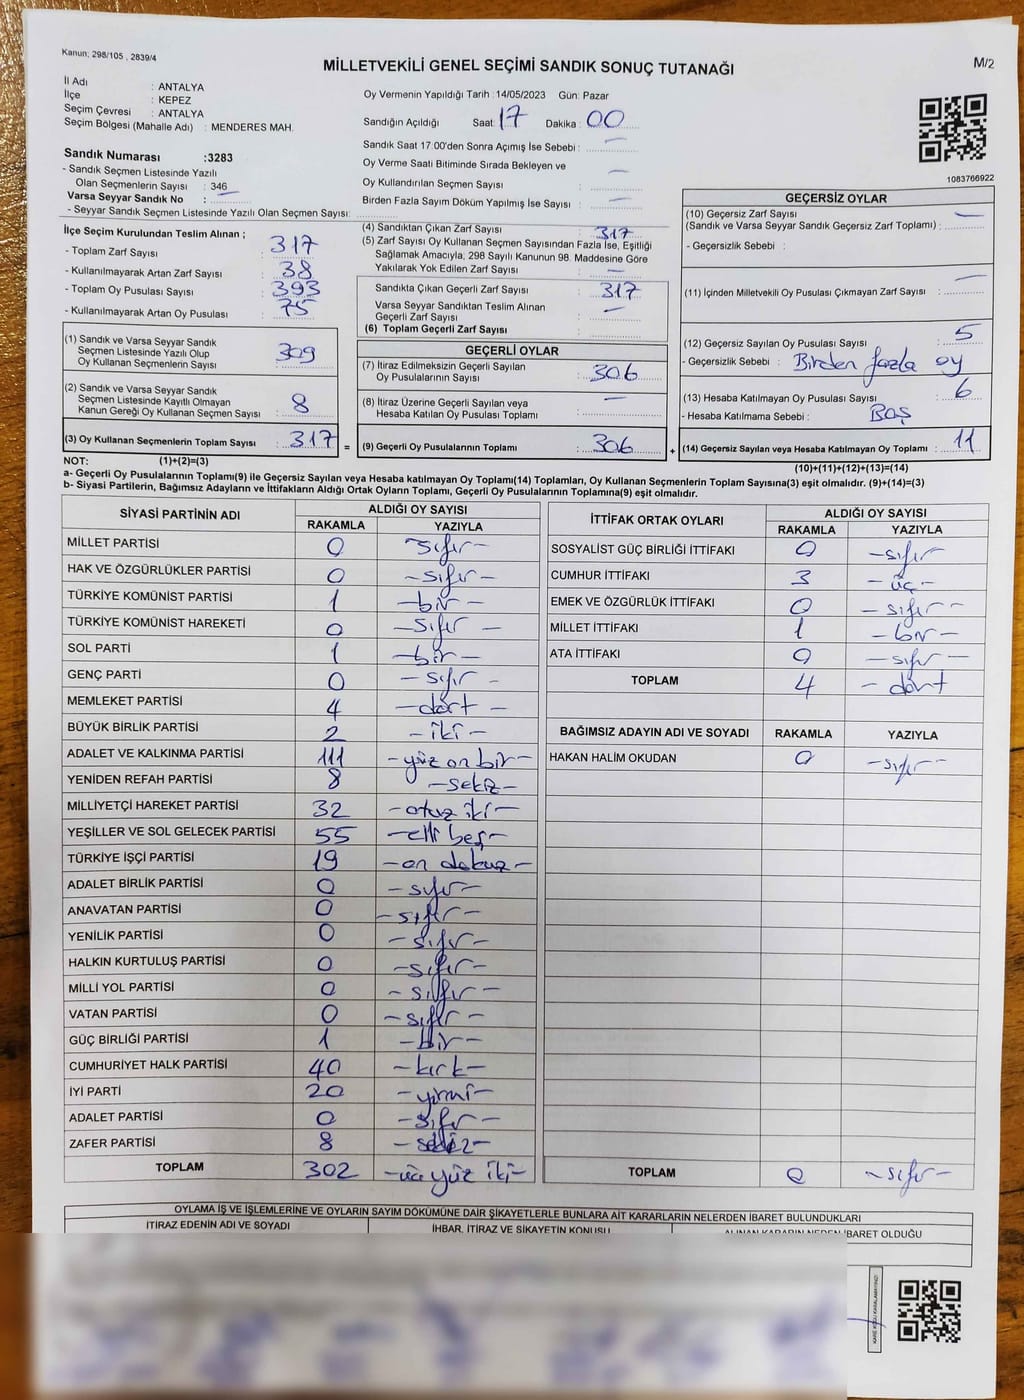 Kanun; 298/105 , 2839/4
MİLLETVEKİLİ GENEL SEÇİMİ SANDIK SONUÇ TUTANAĞI
M/2
İl Adı : ANTALYA
İlçe : KEPEZ
Seçim Çevresi : ANTALYA
Seçim Bölgesi (Mahalle Adı) : MENDERES MAH.
Oy Vermenin Yapıldığı Tarih :14/05/2023 Gün: Pazar
Sandığın Açıldığı Saat : 17 Dakika : 00
Sandık Saat 17:00'den Sonra Açımış İse Sebebi : —
Oy Verme Saati Bitiminde Sırada Bekleyen ve
Oy Kullandırılan Seçmen Sayısı : —
Birden Fazla Sayım Döküm Yapılmış İse Sayısı : —
1083766922
Sandık Numarası :3283
- Sandık Seçmen Listesinde Yazılı
Olan Seçmenlerin Sayısı : 346
Varsa Seyyar Sandık No : —
- Seyyar Sandık Seçmen Listesinde Yazılı Olan Seçmen Sayısı:
İlçe Seçim Kurulundan Teslim Alınan ;
- Toplam Zarf Sayısı : 317
- Kullanılmayarak Artan Zarf Sayısı : 38
- Toplam Oy Pusulası Sayısı : 393
- Kullanılmayarak Artan Oy Pusulası : 75
(1) Sandık ve Varsa Seyyar Sandık
Seçmen Listesinde Yazılı Olup
Oy Kullanan Seçmenlerin Sayısı : 309
(2) Sandık ve Varsa Seyyar Sandık
Seçmen Listesinde Kayıtlı Olmayan
Kanun Gereği Oy Kullanan Seçmen Sayısı : 8
(3) Oy Kullanan Seçmenlerin Toplam Sayısı : 317 =
(4) Sandıktan Çıkan Zarf Sayısı : 317
(5) Zarf Sayısı Oy Kullanan Seçmen Sayısından Fazla İse, Eşitliği
Sağlamak Amacıyla, 298 Sayılı Kanunun 98. Maddesine Göre
Yakılarak Yok Edilen Zarf Sayısı : —
Sandıkta Çıkan Geçerli Zarf Sayısı : 317
Varsa Seyyar Sandıktan Teslim Alınan
Geçerli Zarf Sayısı : —
(6) Toplam Geçerli Zarf Sayısı :
GEÇERLİ OYLAR
(7) İtiraz Edilmeksizin Geçerli Sayılan
Oy Pusulalarının Sayısı : 306
(8) İtiraz Üzerine Geçerli Sayılan veya
Hesaba Katılan Oy Pusulası Toplamı : —
(9) Geçerli Oy Pusulalarının Toplamı : 306 +
GEÇERSİZ OYLAR
(10) Geçersiz Zarf Sayısı
(Sandık ve Varsa Seyyar Sandık Geçersiz Zarf Toplamı) : —
- Geçersizlik Sebebi :
(11) İçinden Milletvekili Oy Pusulası Çıkmayan Zarf Sayısı : —
(12) Geçersiz Sayılan Oy Pusulası Sayısı : 5
- Geçersizlik Sebebi : Birden fazla oy
(13) Hesaba Katılmayan Oy Pusulası Sayısı : 6
- Hesaba Katılmama Sebebi : Boş
(14) Geçersiz Sayılan veya Hesaba Katılmayan Oy Toplamı : 11
NOT: (1)+(2)=(3)
(10)+(11)+(12)+(13)=(14)
a- Geçerli Oy Pusulalarının Toplamı(9) ile Geçersiz Sayılan veya Hesaba katılmayan Oy Toplamı(14) Toplamları, Oy Kullanan Seçmenlerin Toplam Sayısına(3) eşit olmalıdır. (9)+(14)=(3)
b- Siyasi Partilerin, Bağımsız Adayların ve İttifakların Aldığı Ortak Oyların Toplamı, Geçerli Oy Pusulalarının Toplamına(9) eşit olmalıdır.
SİYASİ PARTİNİN ADI ALDIĞI OY SAYISI
RAKAMLA YAZIYLA
MİLLET PARTİSİ 0 sıfır-
HAK VE ÖZGÜRLÜKLER PARTİSİ 0 -sıfır-
TÜRKİYE KOMÜNİST PARTİSİ 1 -bir-
TÜRKİYE KOMÜNİST HAREKETİ 0 -sıfır-
SOL PARTİ 1 -bir-
GENÇ PARTİ 0 -sıfır-
MEMLEKET PARTİSİ 4 -dört-
BÜYÜK BİRLİK PARTİSİ 2 -iki-
ADALET VE KALKINMA PARTİSİ 111 -yüz on bir-
YENİDEN REFAH PARTİSİ 8 -sekiz-
MİLLİYETÇİ HAREKET PARTİSİ 32 -otuz iki-
YEŞİLLER VE SOL GELECEK PARTİSİ 55 -elli beş-
TÜRKİYE İŞÇİ PARTİSİ 19 -on dokuz-
ADALET BİRLİK PARTİSİ 0 -sıfır-
ANAVATAN PARTİSİ 0 -sıfır-
YENİLİK PARTİSİ 0 -sıfır-
HALKIN KURTULUŞ PARTİSİ 0 -sıfır-
MİLLİ YOL PARTİSİ 0 -sıfır-
VATAN PARTİSİ 0 -sıfır-
GÜÇ BİRLİĞİ PARTİSİ 1 -bir-
CUMHURİYET HALK PARTİSİ 40 -kırk-
İYİ PARTİ 20 -yirmi-
ADALET PARTİSİ 0 -sıfır-
ZAFER PARTİSİ 8 -sekiz-
TOPLAM 302 -üç yüz iki-
İTTİFAK ORTAK OYLARI ALDIĞI OY SAYISI
RAKAMLA YAZIYLA
SOSYALİST GÜÇ BİRLİĞİ İTTİFAKI 0 -sıfır
CUMHUR İTTİFAKI 3 -üç-
EMEK VE ÖZGÜRLÜK İTTİFAKI 0 -sıfır-
MİLLET İTTİFAKI 1 -bir-
ATA İTTİFAKI 0 -sıfır-
TOPLAM 4 -dört
BAĞIMSIZ ADAYIN ADI VE SOYADI RAKAMLA YAZIYLA
HAKAN HALİM OKUDAN 0 -sıfır-
TOPLAM 0 -sıfır-
OYLAMA İŞ VE İŞLEMLERİNE VE OYLARIN SAYIM DÖKÜMÜNE DAİR ŞİKAYETLERLE BUNLARA AİT KARARLARIN NELERDEN İBARET BULUNDUKLARI
İTİRAZ EDENİN ADI VE SOYADI İHBAR, İTİRAZ VE ŞİKAYETİN KONUSU ALINAN KARARIN NEDEN İBARET OLDUĞU